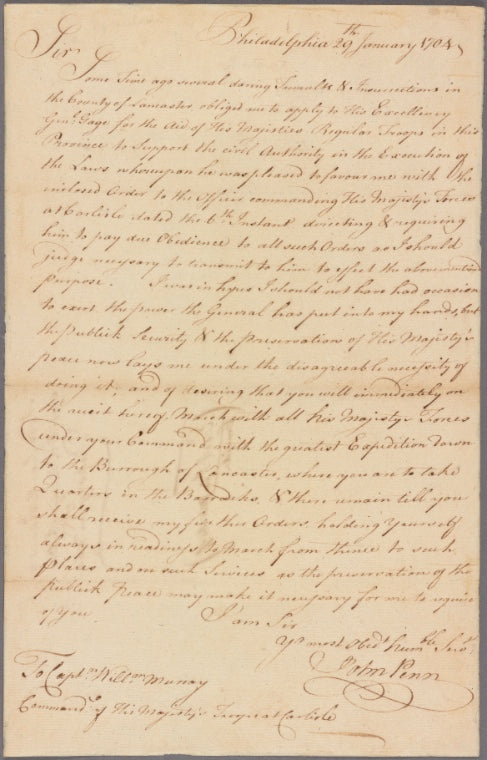 Philadelphia 29th January 1764
Sir
Some time ago several daring Tumults & Insurrections in
the County of Lancaster obliged me to apply to His Excellency
Genl. Gage for the Aid of His Majesties Regular Troops in this
Province to Support the civil Authority in the Execution of
the Laws whereupon he was pleased to favour me with the
inclosed Order to the Officer commanding His Majesty's Forces
at Carlisle dated the 6th Instant directing & requiring
him to pay due Obedience to all such Orders as I should
judge necessary to transmit to him to effect the abovementioned
purpose. I was in hopes I should not have had occasion
to exert the power the General has put into my hands, but
the Publick Security & the preservation of His Majesty's
peace now lays me under the disagreeable necessity of
doing it, and of desiring that you will immediately on
the receit hereof March with all his Majesty's Forces
under your Command with the greatest Expedition down
to the Burrough of Lancaster, where you are to take
Quarters in the Barracks, & there remain till you
shall receive my further Orders holding Yourself
always in readiness to March from thence to such
places and on such Services as the preservation of the
publick Peace may make it necessary for me to require
of you. I am Sir
Yr. most Obedt. humble Servt.
John Penn
To Captn. Willm. Murray
Commandg. of His Majesty's Troops at Carlisle